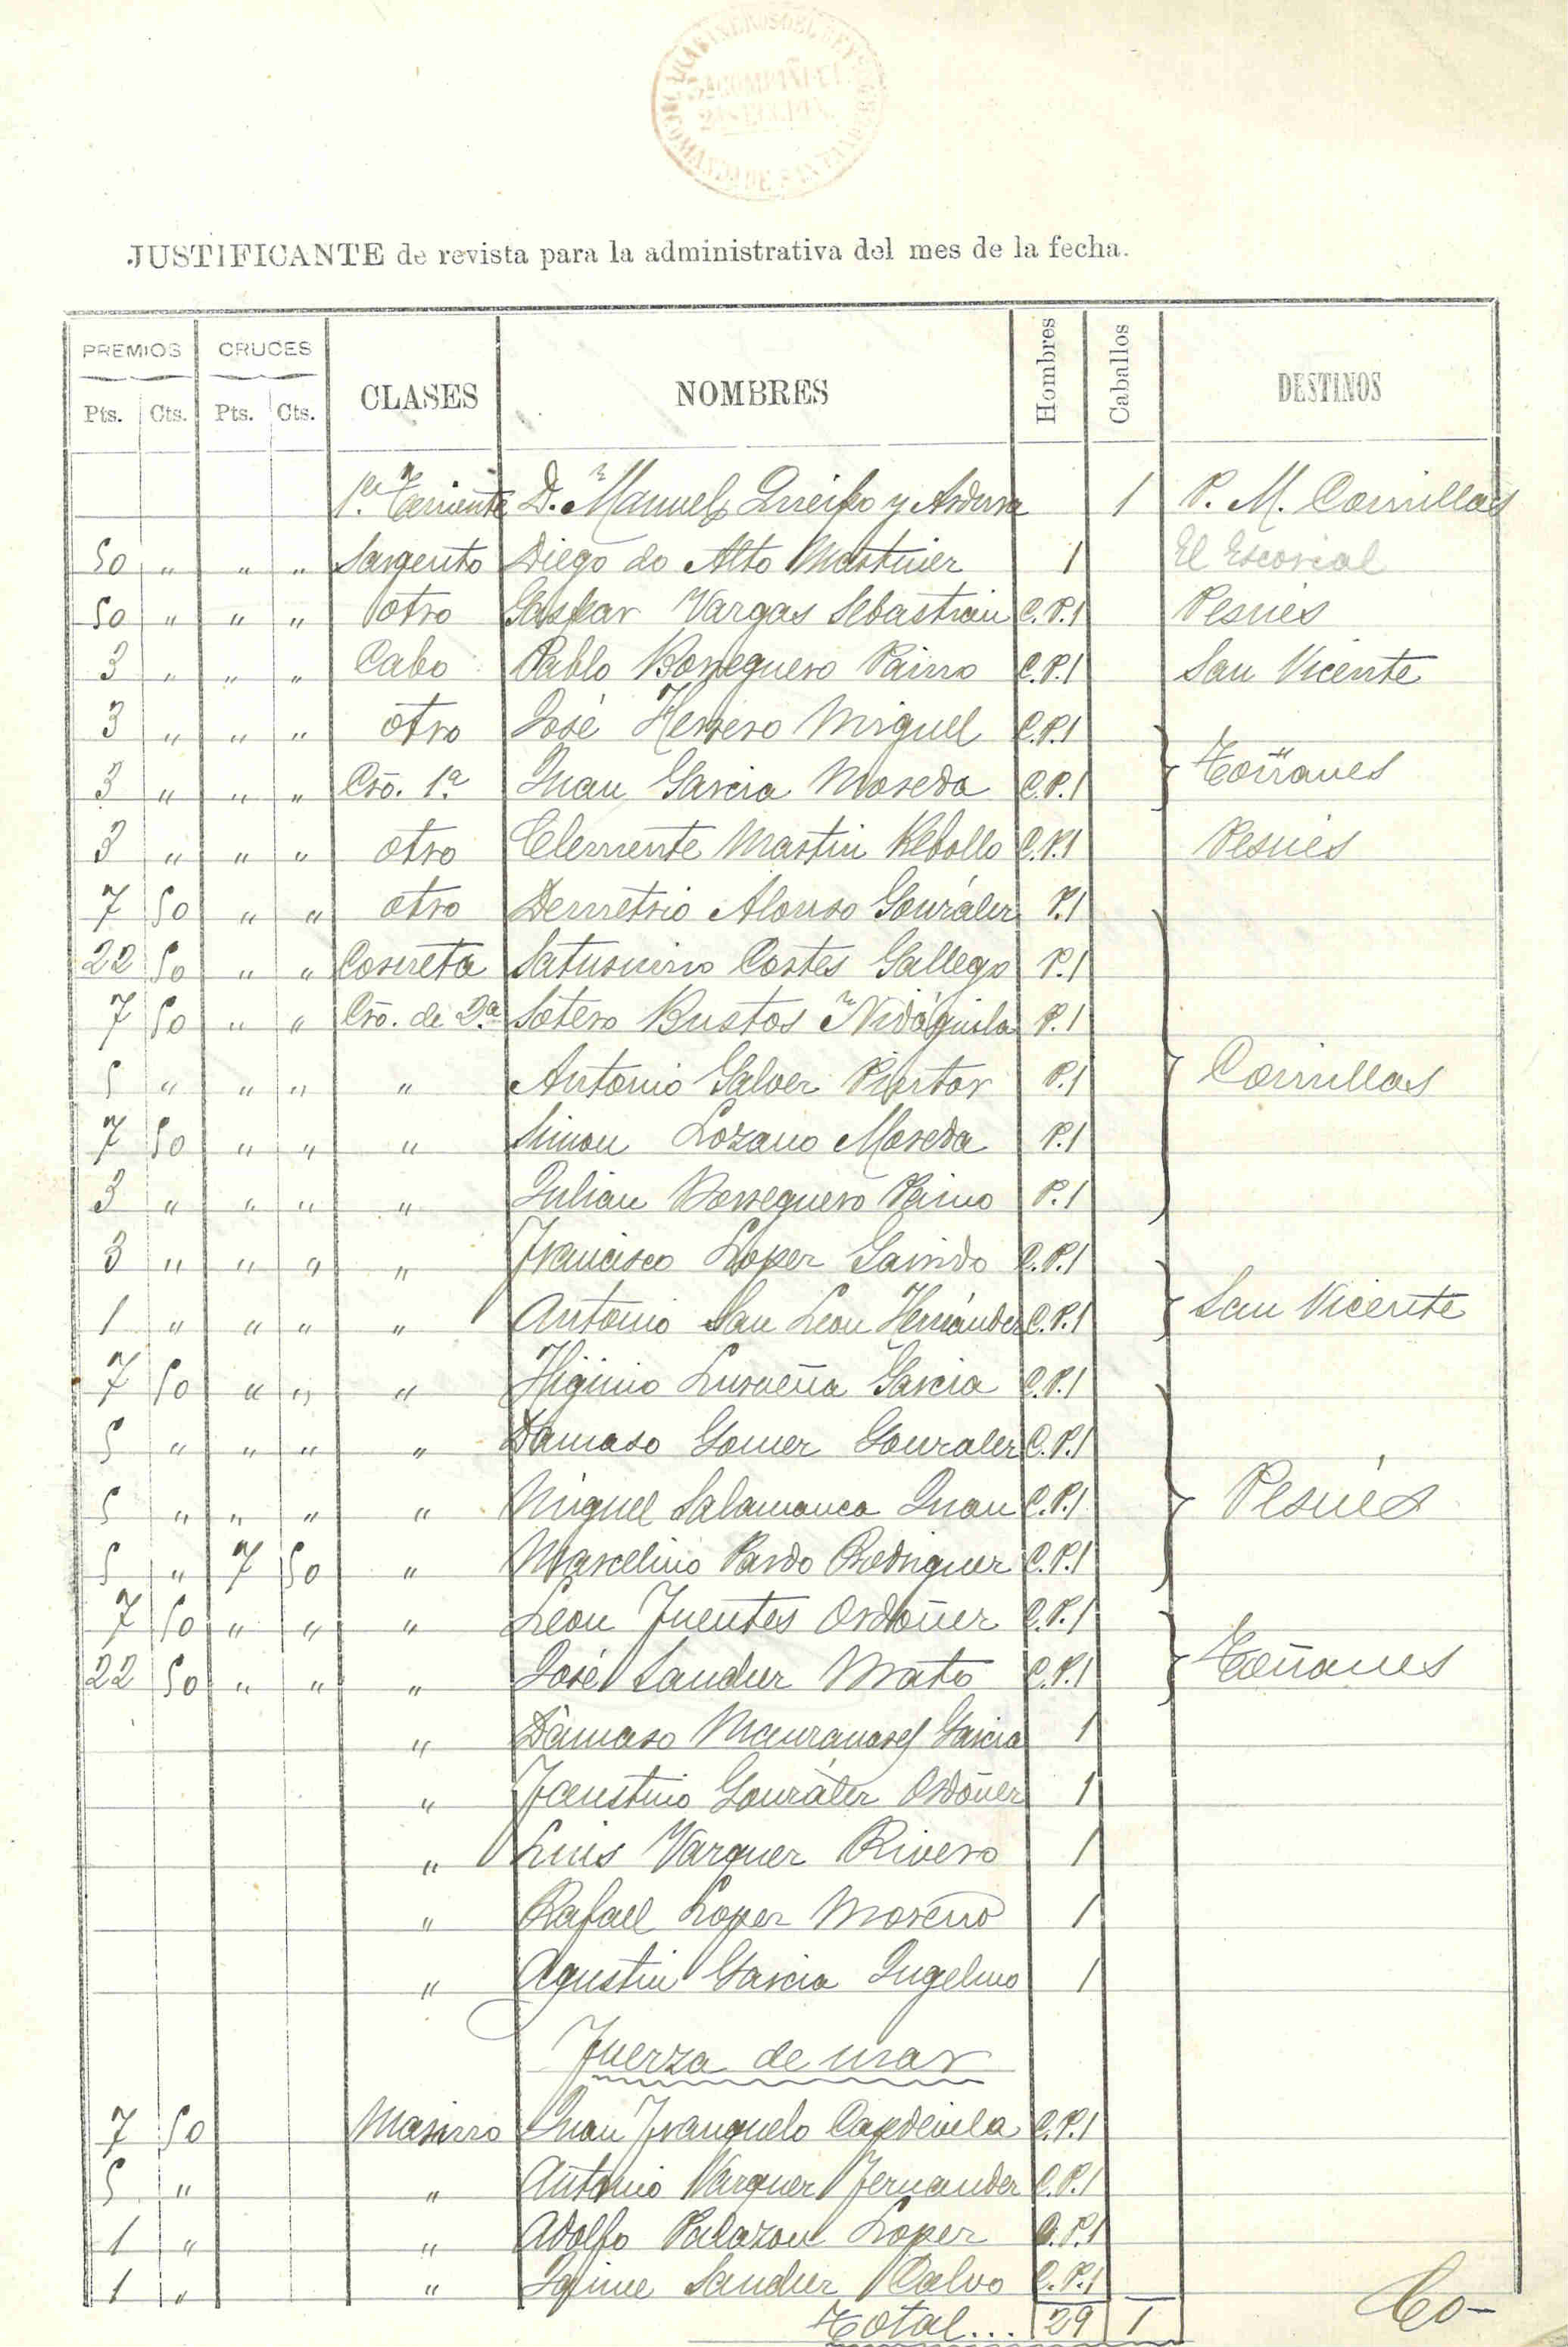 CARABINEROS DEL REY
COMAND. DE SANTANDER
JUSTIFICANTE de revista para la administrativa del mes de la fecha.
PREMIOS CRUCES CLASES NOMBRES Hombres Caballos DESTINOS
Pts. Cts. Pts. Cts.
1er. Teniente D.n Manuel Queipo y 1 P. M. Comillas
50 " " " Sargento Diego do Alto 1 El Escorial
50 " " " otro Gaspar Vargas Sebastian C.P.1 Pesués
3 " " " Cabo Pablo Borreguero Paino C.P.1 San Vicente
3 " " " otro José Herrero Miguel C.P.1
3 " " " Cro. 1ª Juan Garcia Moreda C.P.1 Toñanes
3 " " " otro Clemente Martin Rebollo C.P.1 Pesués
7 50 " " otro Demetrio Alonso Gonzáler P.1
22 50 " " Corneta Saturnino Cortes Gallego P.1
7 50 " " Cro. de 2ª Sotero Bustos Vidáguila P.1
5 " " " " Antonio Galver Pintor P.1 Comillas
7 50 " " " Simon Lozano Moreda P.1
3 " " " " Julian Borreguero Paino P.1
3 " " " " Francisco Loper Garrido C.P.1
1 " " " " Antonio San Leon Hernánder C.P.1 San Vicente
7 50 " " " Higinio Lurueña Garcia C.P.1
5 " " " " Dámaso Gomer Gonzaler C.P.1
5 " " " " Miguel Salamanca Juan C.P.1 Pesués
5 " 7 50 " Marcelino Pardo Rodriguer C.P.1
7 50 " " " Leon Fuentes Ordoñer C.P.1
22 50 " " " José Sancher Mato C.P.1 Toñanes
" Dámaso Manzanares Garcia 1
" Faustino Gonzáler Ordoñer 1
" Luis Varquer Rivero 1
" Rafael Loper Moreno 1
" Agustin Garcia Jugelmo 1
Fuerza de mar
7 50 Marinro Juan Franquelo Capdevila C.P.1
5 " " Antonio Varquer Fernander C.P.1
1 " " Adolfo Palazon Loper C.P.1
1 " " Jaime Sancher Calvo C.P.1
Total... 29 1 Co-